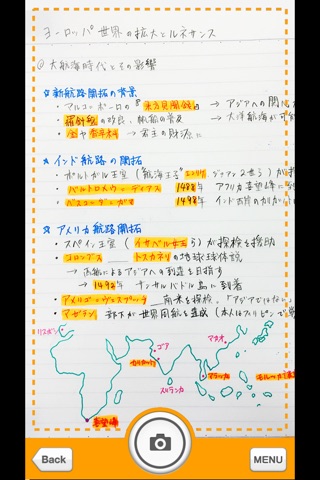 ヨーロッパ世界の拡大とルネサンス
@ 大航海時代とその影響
☆新航路開拓の背景
・マルコ=ポーロの『東方見聞録』 → アジアへの関心
・羅針盤の改良、帆船の普及 → 大洋航海が可
・金や香辛料 → 君主の財源に
☆インド航路の開拓
・ポルトガル王室（航海王子"エンリケ ジョアン2世ら）が
・バルトロメウ=ディアス 1488年 アフリカ喜望峰に
・ヴァスコ=ダ=ガマ 1498年 インド西岸のカリカット
☆アメリカ航路開拓
・スペイン王室（イサベル女王ら）が探検を援助
・コロンブス トスカネリの地球球体説
→ 西航によるアジアへの到達を目指す
→ 1492年 サンサルバドル島に到着
・アメリゴ=ヴェスプッチ 南米を探検、「アジアではない
・マゼラン 部下が世界周航を達成（本人はフィリピンで
リスボン
ゴア
マカオ
カリカット
スリランカ
マラッカ
喜望峰
Back
MENU